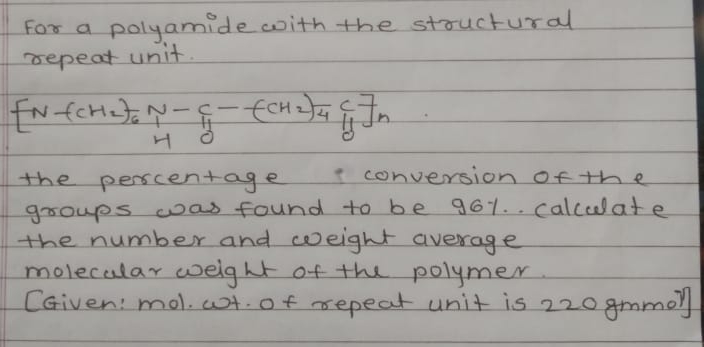 For a polyamide with the structural
repeat unit.
[N-(CH₂)₆ N-C-(CH₂)₄ C]n
H O O
the percentage conversion of the
groups was found to be 96%.. calculate
the number and weight average
molecular weight of the polymer.
[Given: mol. wt. of repeat unit is 220 gmmol]